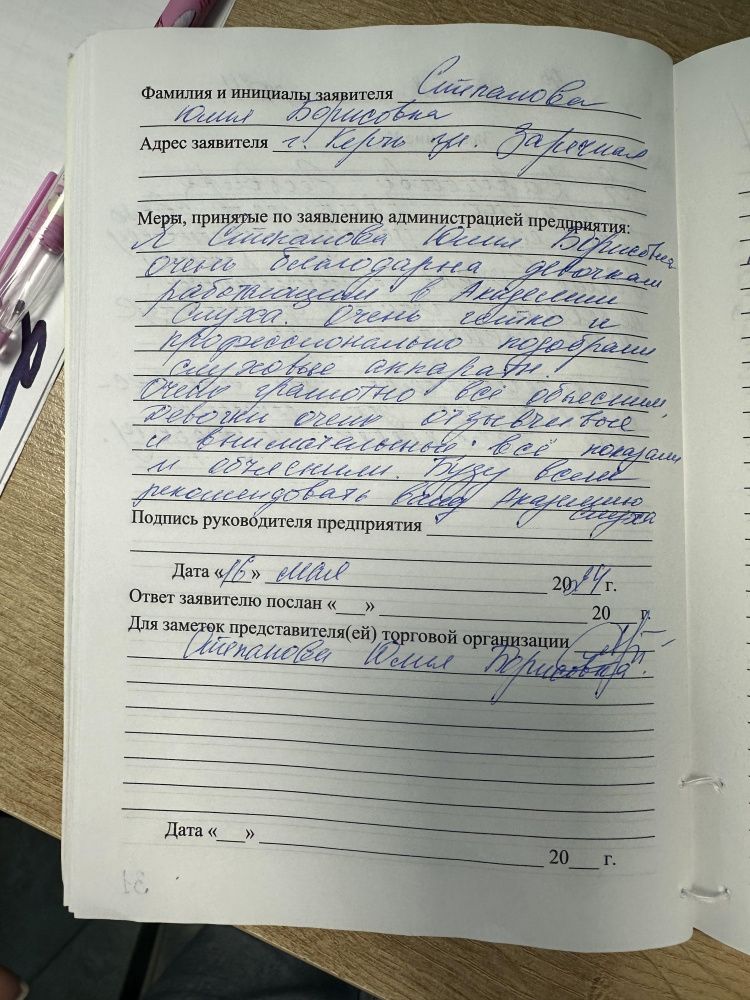 Фамилия и инициалы заявителя Степанова
Юлия Борисовна
Адрес заявителя г. Керчь ул. Заречная
Меры, принятые по заявлению администрацией предприятия:
Я Степанова Юлия Борисовна
очень благодарна девочкам
работающим в Академии
Слуха. Очень чётко и
профессионально подобрали
слуховые аппараты.
Очень грамотно всё объяснили,
Девочки очень отзывчивые
и внимательный. всё показали
и объяснили. Буду всем
рекомендовать вашу Академию
слуха
Подпись руководителя предприятия
Дата «16» мая 2024 г.
Ответ заявителю послан «___» 20___ г.
Для заметок представителя(ей) торговой организации
Степанова Юлия Борисовна.
Дата «___» 20___ г.
31